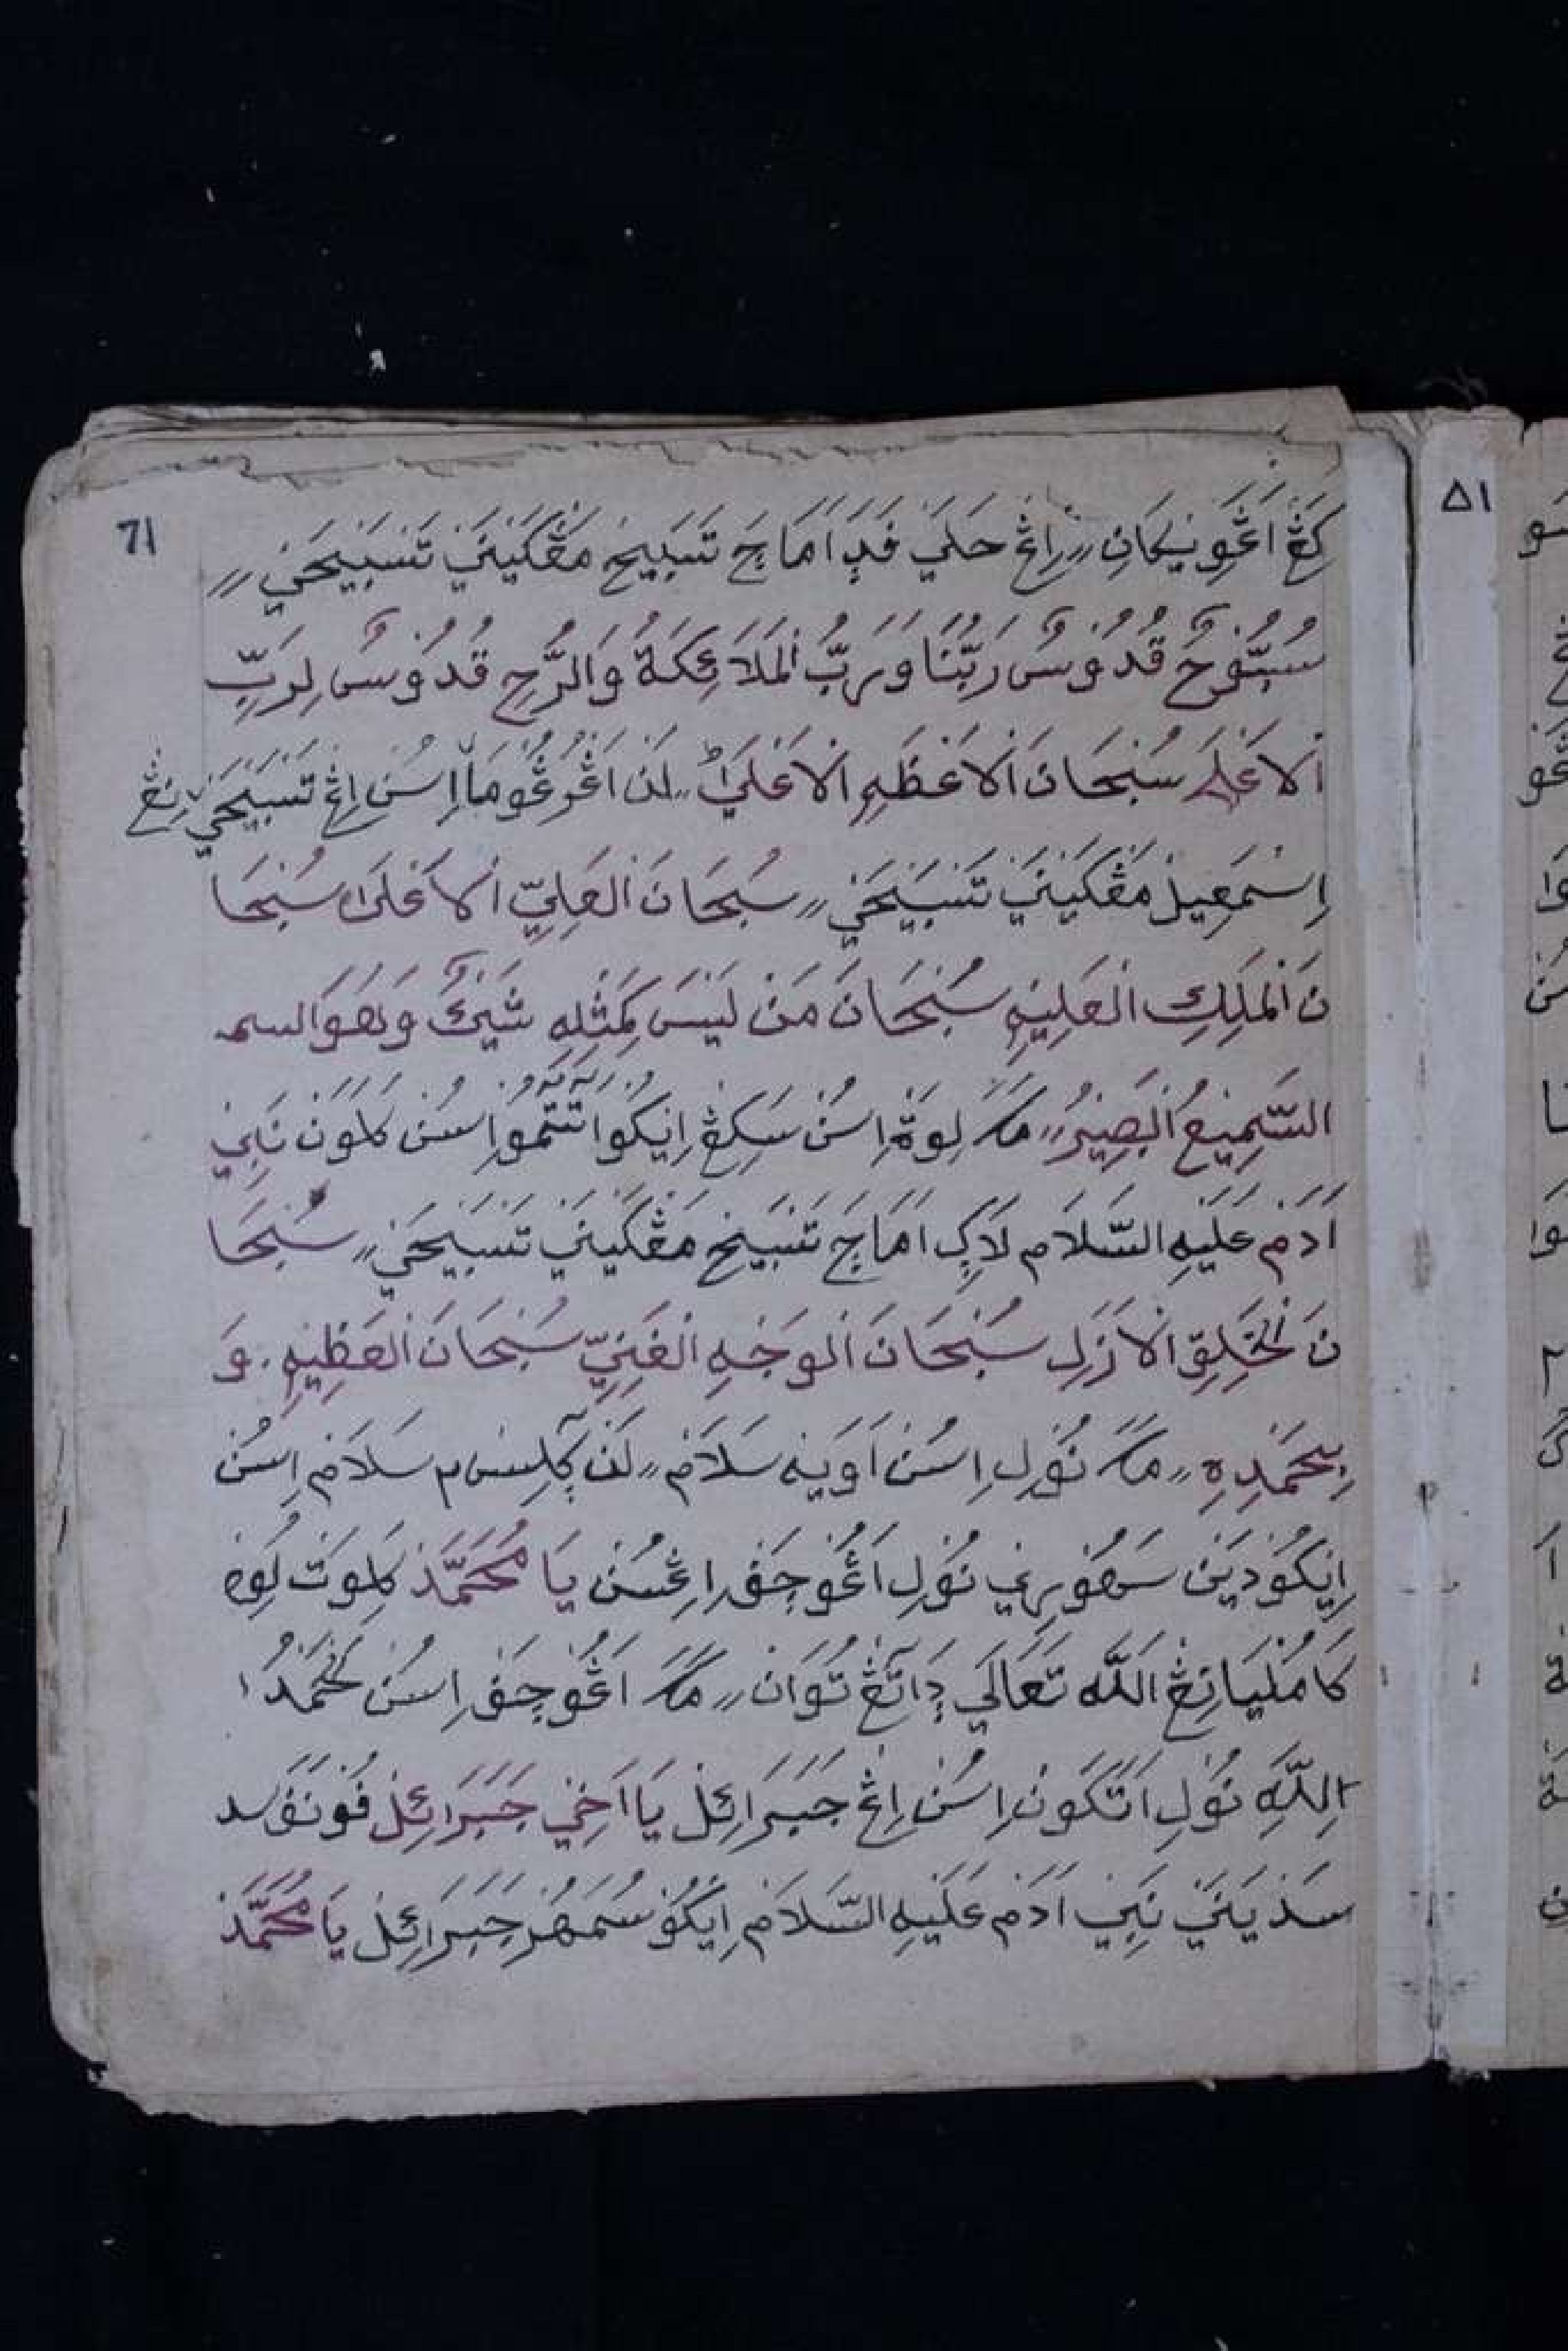 71
كَڠْ اَڠَوِيْكَانِ ,, اِڠْ حَلَيْ فَدٕ اَمَاچَ تَسْبِيحْ مَڠْكَيْنَيْ تَسْبِيْحَيْ ,,
سُبُّوْحٌ قُدُّوْسٌ رَبُّنَا وَرَبُّ الْمَلَائِكَةُ وَالرُّحِ قُدُّوْسُ لِرَبِّ
الْاَعْلَى سُبْحَانَ الْاَعْظَمِ الْاَعْلَى ,, لَنْ اَڠْرُڠُومَا اِسُنْ اِڠْ تَسْبِيْحَيْ نِڠْ
اِسْمَعِيلْ مَڠْكَيْنَيْ تَسْبِيْحَيْ ,, سُبْحَانَ الْعَلِيِّ الْاَعْلَى سُبْحَا
نَ الْمَلِكِ الْعَلِيْمِ سُبْحَانَ مَنْ لَيْسَ كَمِثْلِهِ شَيْئٌ وَهُوَ السم
السَّمِيْعُ الْبَصِيْرُ ,, مَكَ لِوَةْ اِسُنْ سَكِڠْ اِيْكُوا تَتَمُوْ اِسُنْ كَلَوَنْ نَبِيْ
اَدَمْ عَلَيْهِ السَّلَامْ لَاكِ اَمَاچَ تَسْبِيْحْ مَڠْكَيْنَيْ تَسْبِيْحَيْ ,, سُبْحَا
نَ الْخَلِقِ الْاَزَلِ سُبْحَانَ الْوَجْهِ الْغَنِيِّ سُبْحَانَ الْعَظِيْمِ . وَ
بِحَمْدِهِ ,, مَكَ نُوْلِ اِسُنْ اَوَيْهْ سَلَامْ ,, لَنْ سَلَامْ اِسُنْ
اِيْكُوْ دَيْنْ سَهُوْرِيْ نُوْلِ اَڠُوْچَڤْ اِڠْسُنْ يَا مُحَمَّدْ كَلِوَتْ لُوِهْ
كَامُلْيَانِڠْ اللّٰهْ تَعَالَى دَاتَڠْ تُوَانْ ,, مَكَ اَڠُوْچَڤْ اِسُنْ لْحَمْدُ ا
اِللّٰهِ نُوْلِ اَتَكَونْ اِسُنْ اِڠْ جَبَرَائِلْ يَا اَخِيْ جَبَرَائِلْ فُوْنَڤَ سد
سَدْيَنَيْ نَبِيْ اَدَمْ عَلَيْهِ السَّلَامْ اِيْكُوْ سُمَهُرْ جَبَرَائِلْ يَا مُحَمَّدْ